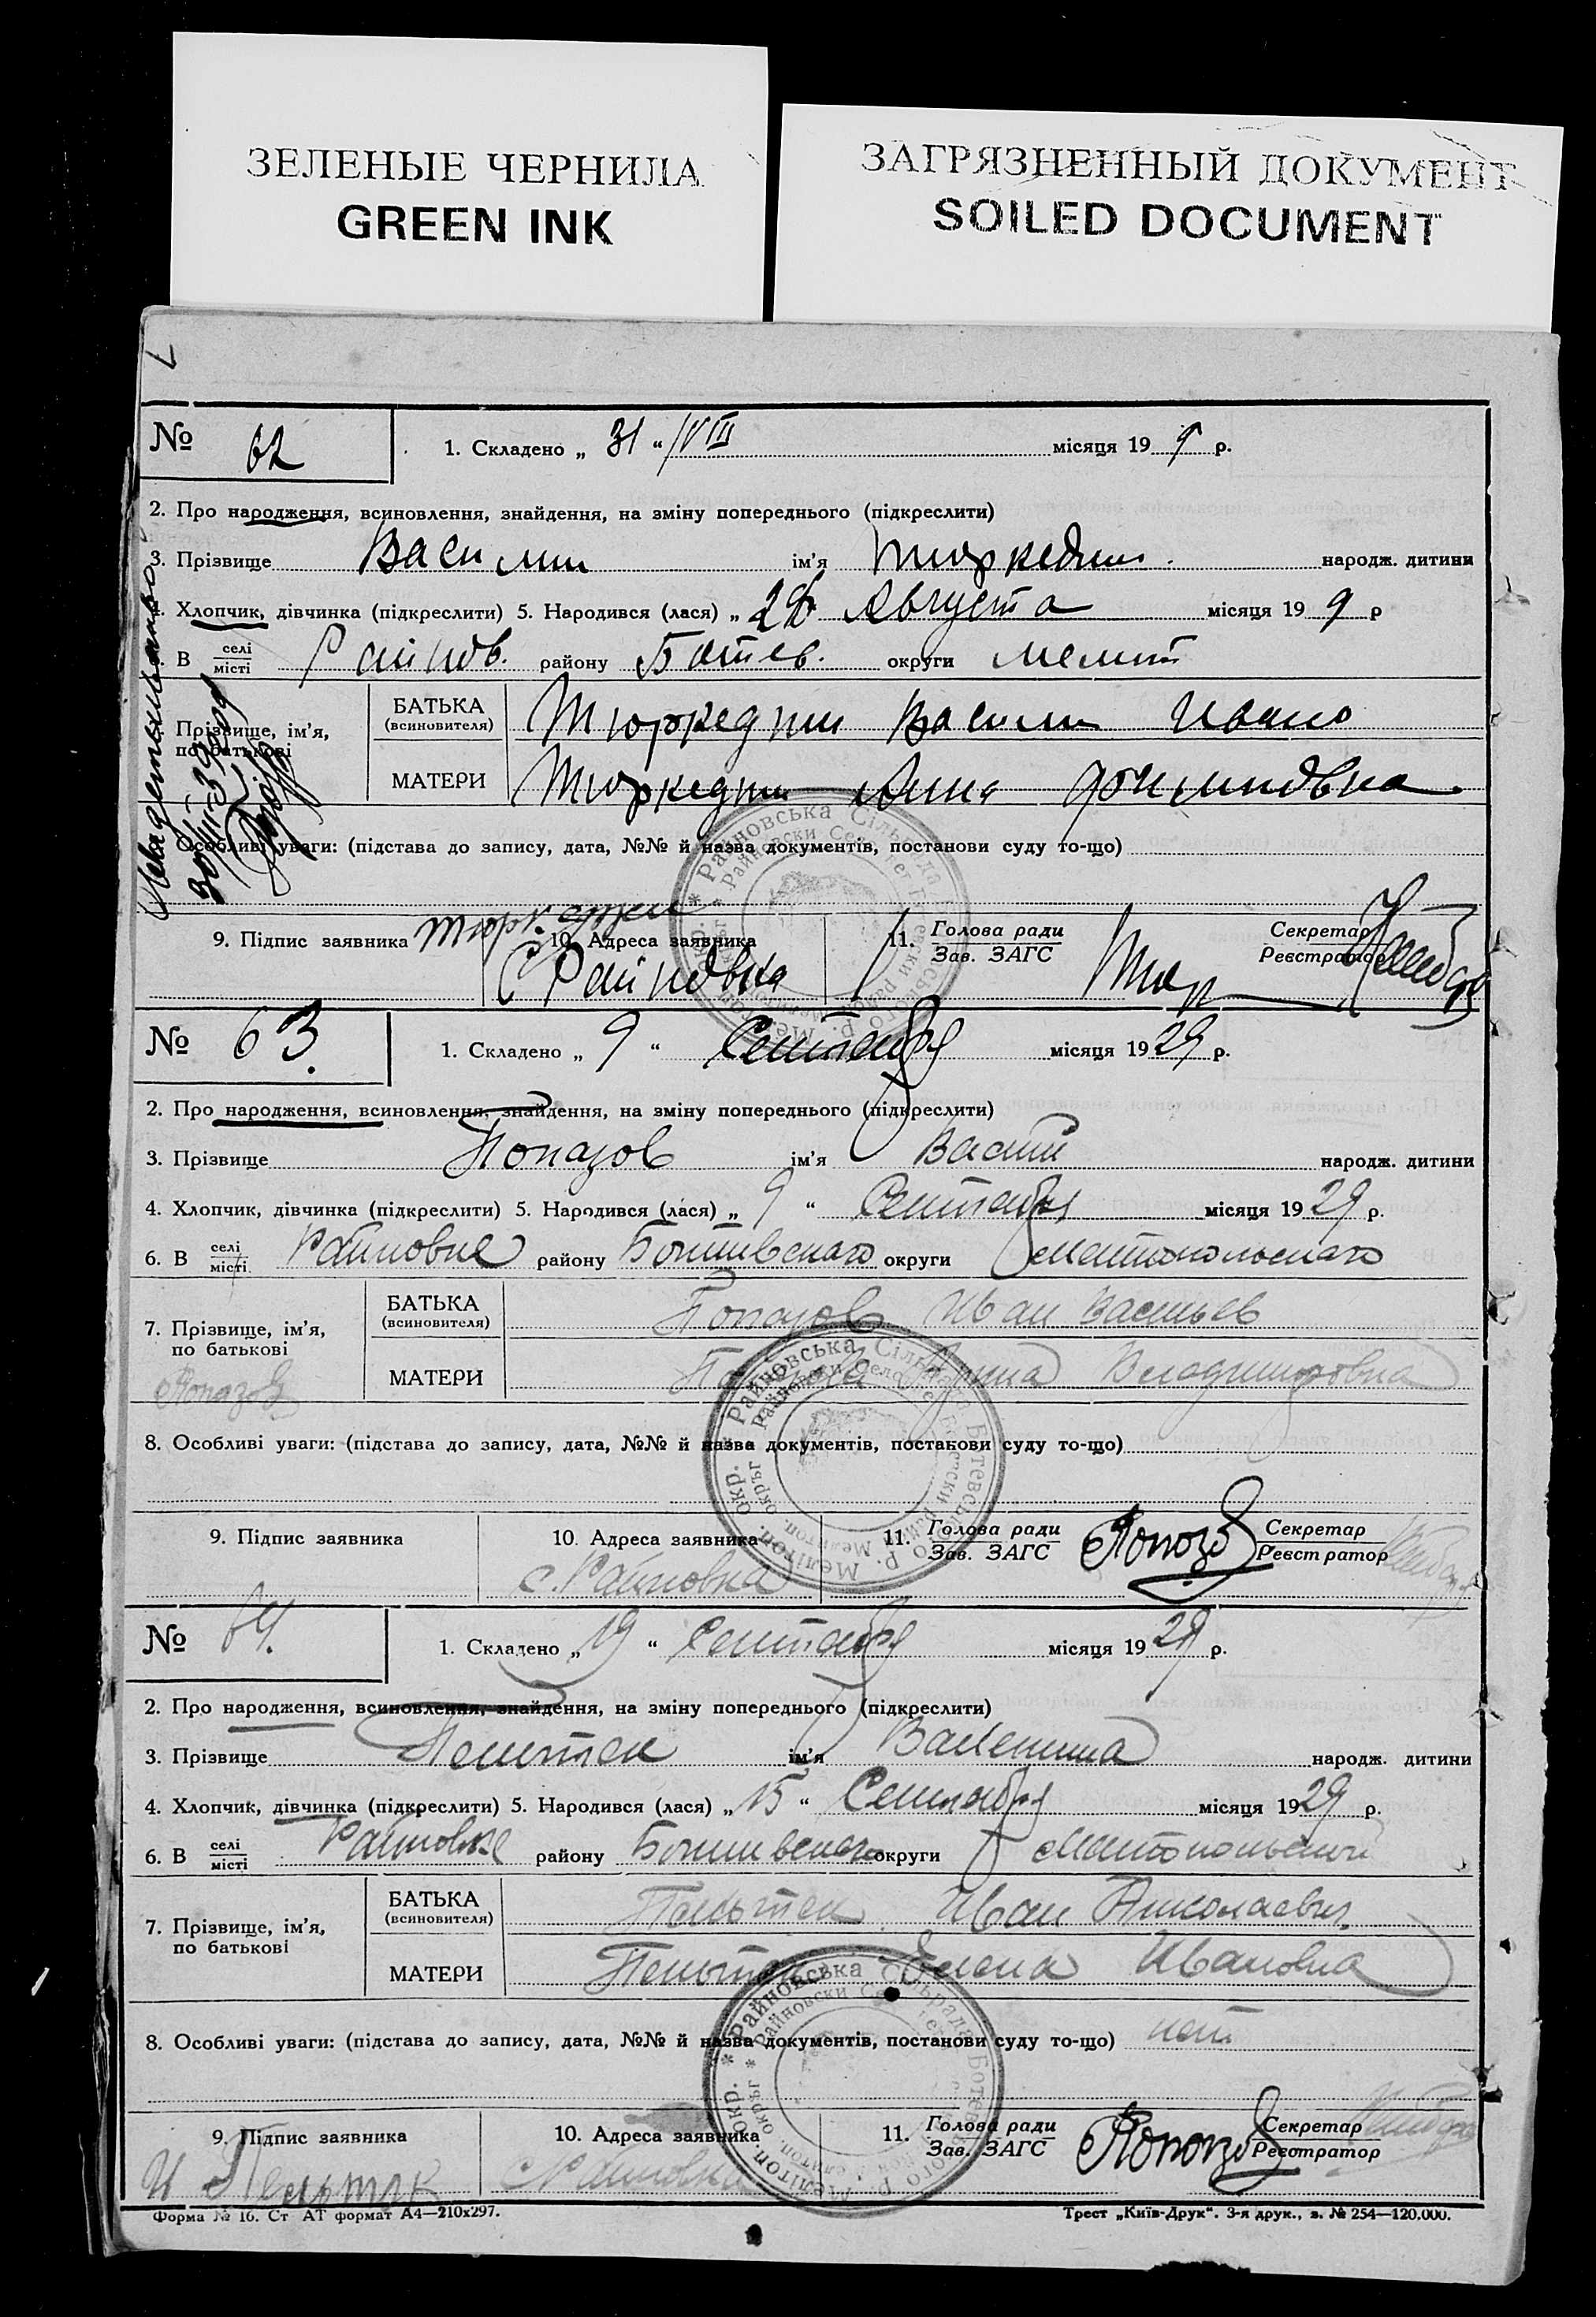 ЗЕЛЕНЫЕ ЧЕРНИЛА
GREEN INK
ЗАГРЯЗНЕННЫЙ ДОКУМЕНТ
SOILED DOCUMENT
№ 62
1. Складено „ 31 “ VIII місяця 19 9 р.
2. Про народження, всиновлення, знайдення, на зміну попереднього (підкреслити)
3. Прізвище Васили ім’я Тюркеджи народж. дитини
Хлопчик, дівчинка (підкреслити) 5. Народився (лася) „ 28 Августа місяця 19 9 р
В селі місті Райнов. району Ботев. округи Мелит
Прізвище, ім’я, по батькові
БАТЬКА (всиновителя) Тюркеджи Васили Ивано
МАТЕРИ Тюркеджи Анна Филиповна
Особливі уваги: (підстава до запису, дата, №№ й назва документів, постанови суду то-що)
9. Підпис заявника Тюркеджи
10. Адреса заявника С Райновка
11. Голова ради Зав. ЗАГС
Секретар Реєстратор
№ 63.
1. Складено „ 9 “ Сентября місяця 19 29 р.
2. Про народження, всиновлення, знайдення, на зміну попереднього (підкреслити)
3. Прізвище Попазов ім’я Васил народж. дитини
4. Хлопчик, дівчинка (підкреслити) 5. Народився (лася) „ 9 “ Сентября місяця 19 29 р.
6. В селі місті Райновке району Ботивского округи Мелитопольского
7. Прізвище, ім’я, по батькові
Попазов
БАТЬКА (всиновителя) Попазов Иван Васильев
МАТЕРИ Попазова Ирина Владимировна
8. Особливі уваги: (підстава до запису, дата, №№ й назва документів, постанови суду то-що)
9. Підпис заявника
10. Адреса заявника с. Райновка
11. Голова ради Зав. ЗАГС Попозов
Секретар Реєстратор
№ 64.
1. Складено „ 19 “ Сентября місяця 19 29 р.
2. Про народження, всиновлення, знайдення, на зміну попереднього (підкреслити)
3. Прізвище Пельтек ім’я Валенина народж. дитини
4. Хлопчик, дівчинка (підкреслити) 5. Народився (лася) „ 15 “ Сентября місяця 19 29 р.
6. В селі місті Райновке району Ботивского округи Мелитопольской
7. Прізвище, ім’я, по батькові
БАТЬКА (всиновителя) Пельтек Иван Николаевич
МАТЕРИ Пельтек Елена Ивановна
8. Особливі уваги: (підстава до запису, дата, №№ й назва документів, постанови суду то-що) нет
9. Підпис заявника И Пельтек
10. Адреса заявника с. Райновка
11. Голова ради Зав. ЗАГС Попозов
Секретар Реєстратор
Форма № 16. Ст АТ формат А4—210х297.
Трест „Київ-Друк“. 3-я друк., з. № 254—120.000.